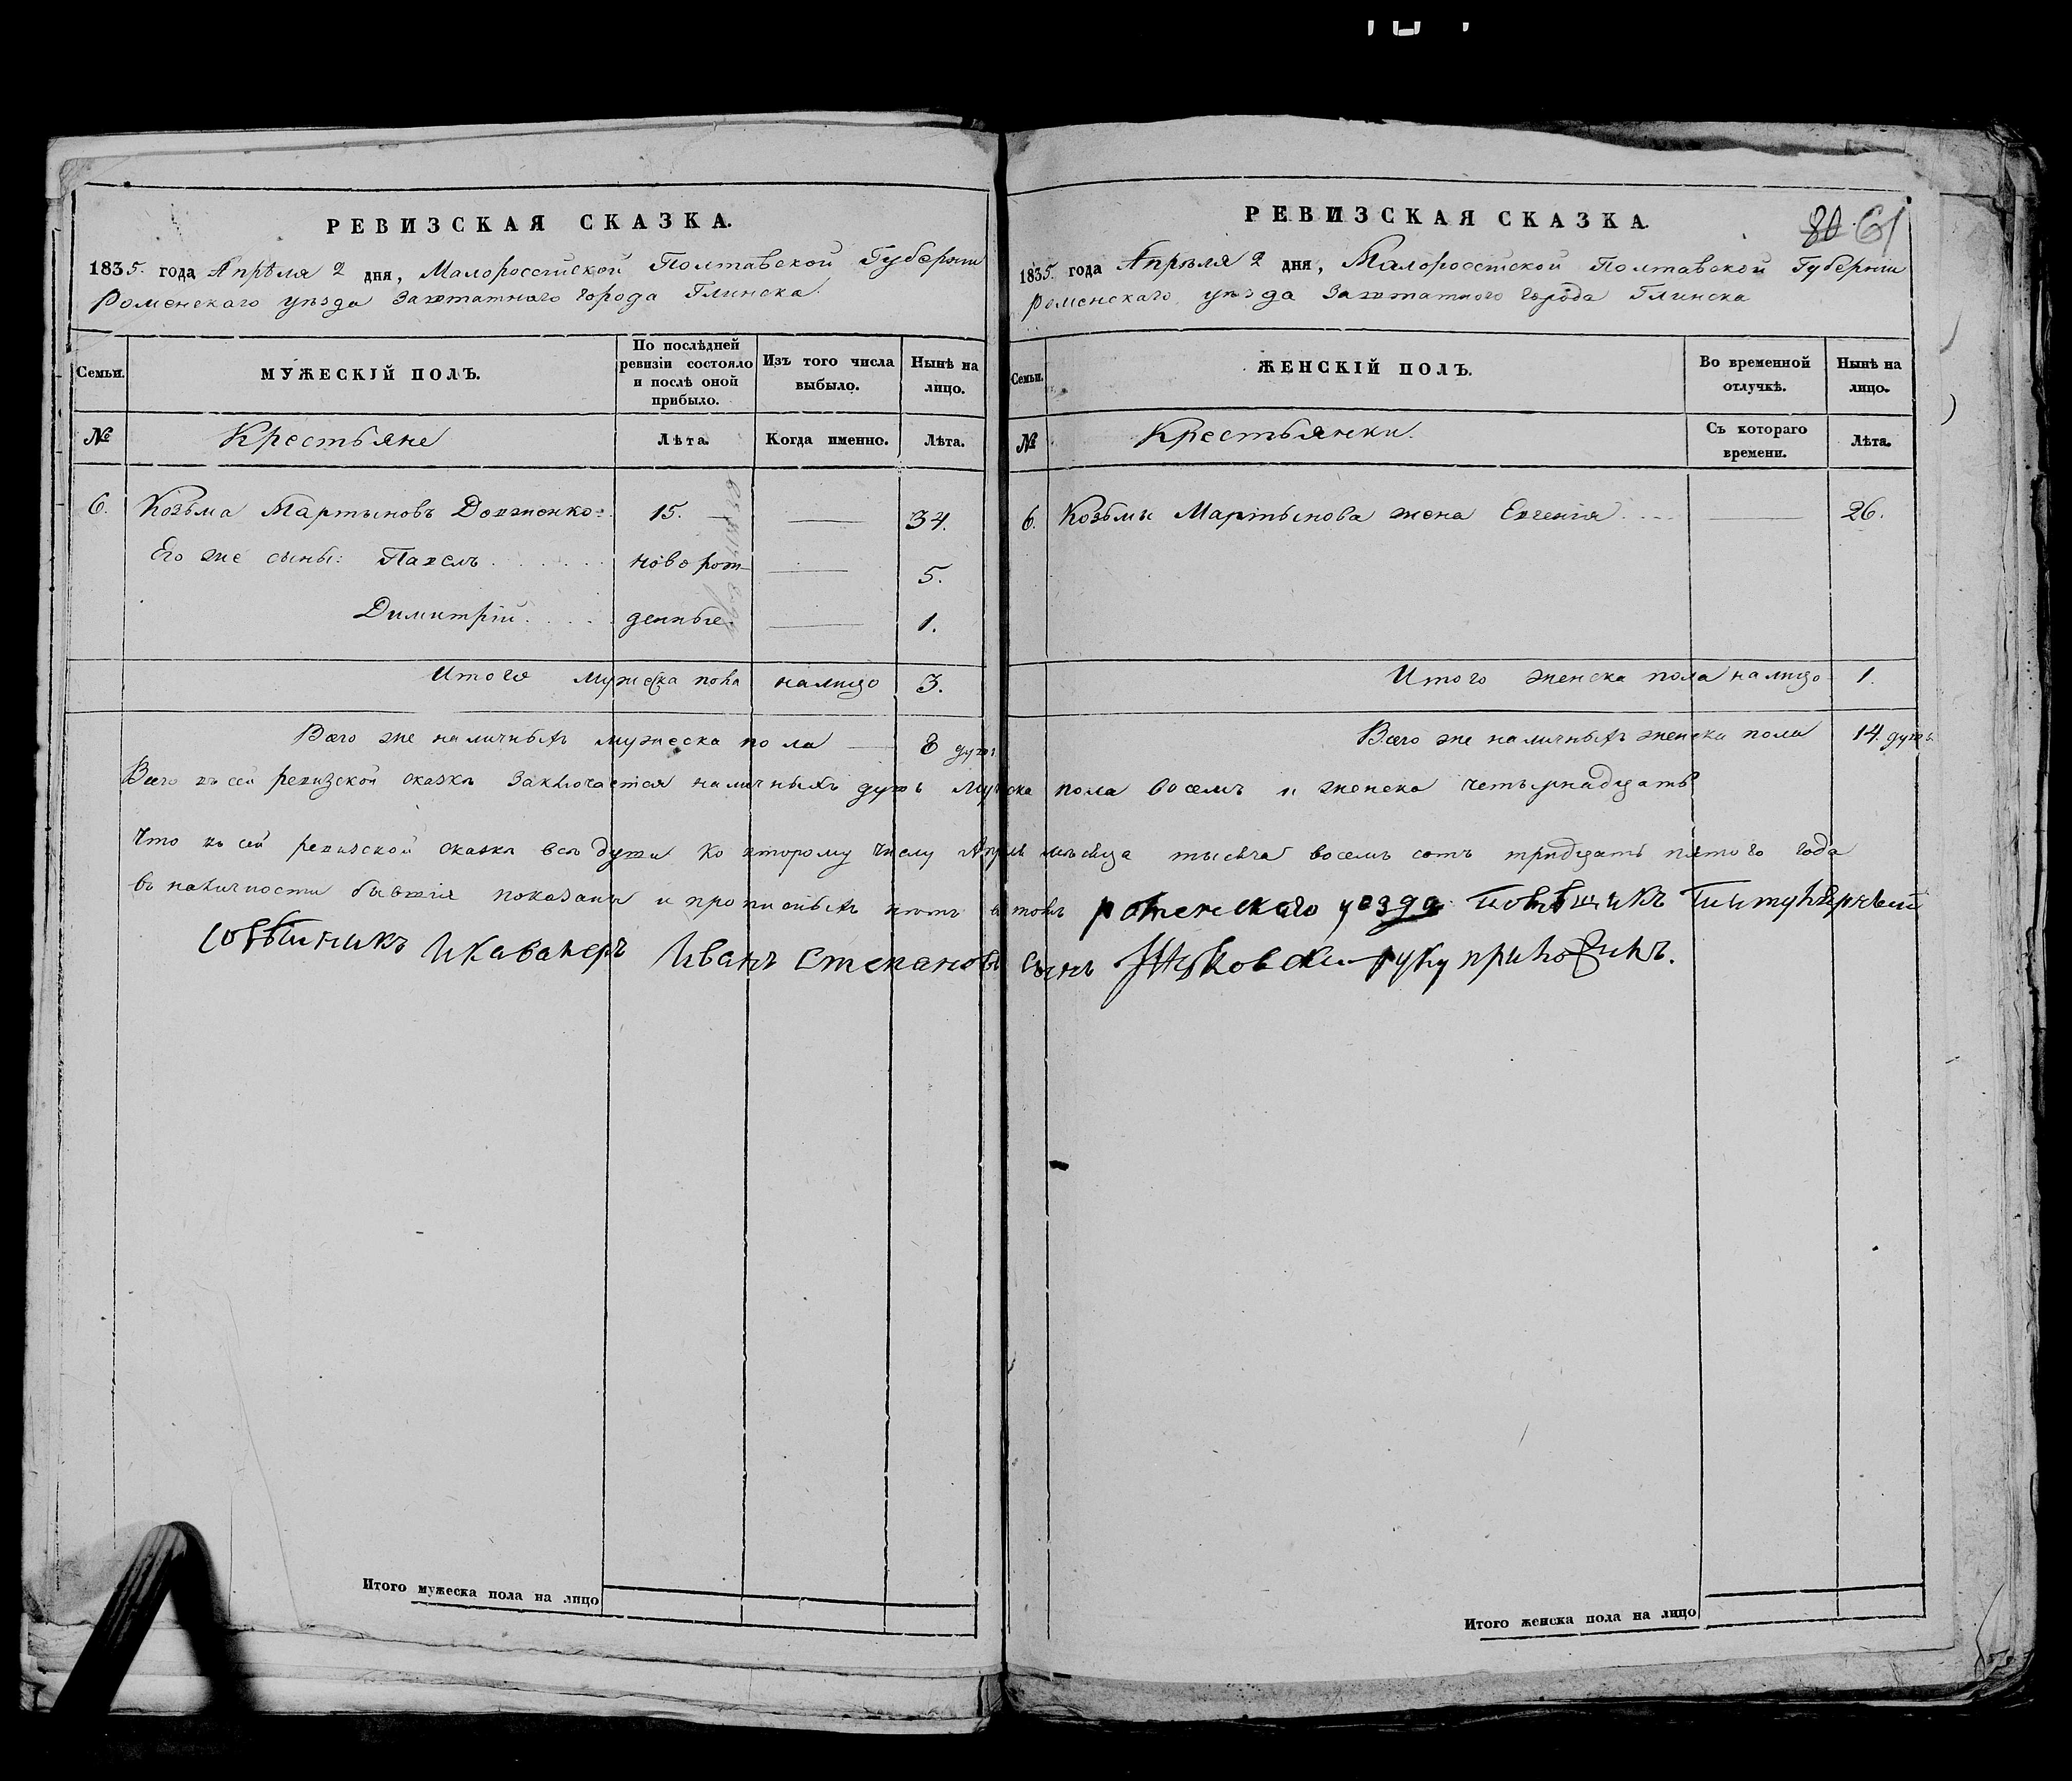 РЕВИЗСКАЯ СКАЗКА.
1835. года Апрѣля 2 дня, Малороссійской Полтавской Губерніи
Роменскаго уѣзда Заштатнаго города Глинска.
Семьи.
МУЖЕСКІЙ ПОЛЪ.
По послѣдней ревизіи состояло и послѣ оной прибыло.
Изъ того числа выбыло.
Нынѣ на лицо.
№ Крестьяне Лѣта. Когда именно. Лѣта.
6. Козьма Мартыновъ Довженко 15. 34.
Его же сыны: Павелъ новорож 5.
Димитрій денные 1.
Итого мужеска пола налицо 3.
Всего же наличныхъ мужеска пола 8 душъ
РЕВИЗСКАЯ СКАЗКА.
80 61
1835. года Апрѣля 2 дня, Малороссійской Полтавской Губерніи
Роменскаго уѣзда Заштатного города Глинска
Семьи.
ЖЕНСКІЙ ПОЛЪ.
Во временной отлучкѣ.
Нынѣ на лицо.
№ Крестьянки. Съ котораго времени. Лѣта.
6. Козьмы Мартынова жена Евгенія 26.
Итого женска пола налицо 1.
Всего же наличныхъ женска пола 14 душъ
Всего въ сей ревизской сказкѣ заключается наличныхъ душъ мужска пола восемъ и женска четырнадцать
Что въ сей ревизской сказкѣ всѣ души ко второму числу Апрѣля мѣсяца тысяча восемъ сотъ тридцать пятого года
въ наличности бывшія показаны и прописныхъ нѣтъ въ томъ роменскаго уезда
совѣтникъ и Кавалеръ Иванъ Степановъ сынъ руку приложилъ.
Итого мужеска пола на лицо
Итого женска пола на лицо